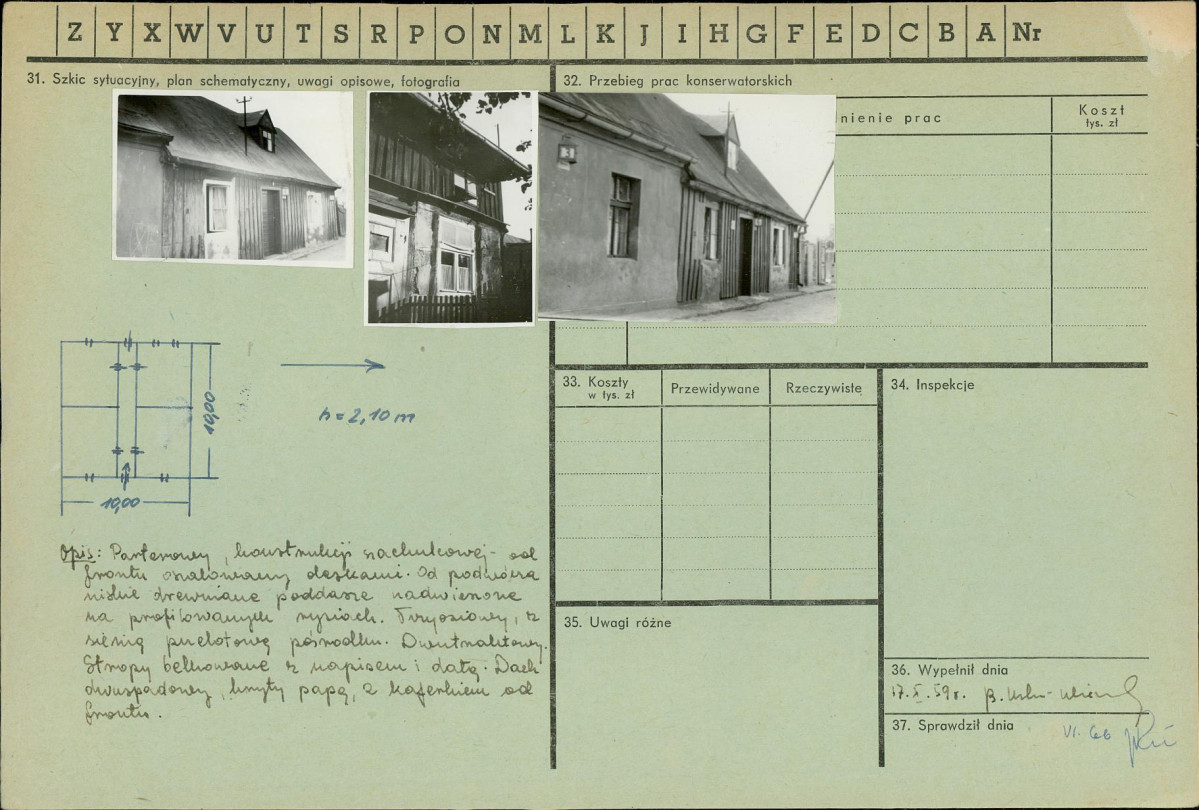 Z Y X W V U T S R P O N M L K J I H G F E D C B A Nr
31. Szkic sytuacyjny, plan schematyczny, uwagi opisowe, fotografia
10,00
h = 2,10 m
10,00
Opis: Parterowy, konstrukcji szachulcowej - od
frontu oszalowany deskami. Od podwórza
niskie drewniane poddasze nadwieszone
na profilowanych rysiach. Trzyosiowy, z
sienią przelotową pośrodku. Dwutraktowy.
Stropy belkowane z napisem i datą. Dach
dwuspadowy, kryty papą, z kaferkiem od
frontu.
32. Przebieg prac konserwatorskich
nienie prac
Koszt
tys. zł
3
33. Koszty
w tys. zł
Przewidywane
Rzeczywiste
34. Inspekcje
35. Uwagi różne
36. Wypełnił dnia
17.X.59r. B.
37. Sprawdził dnia
VI. 66